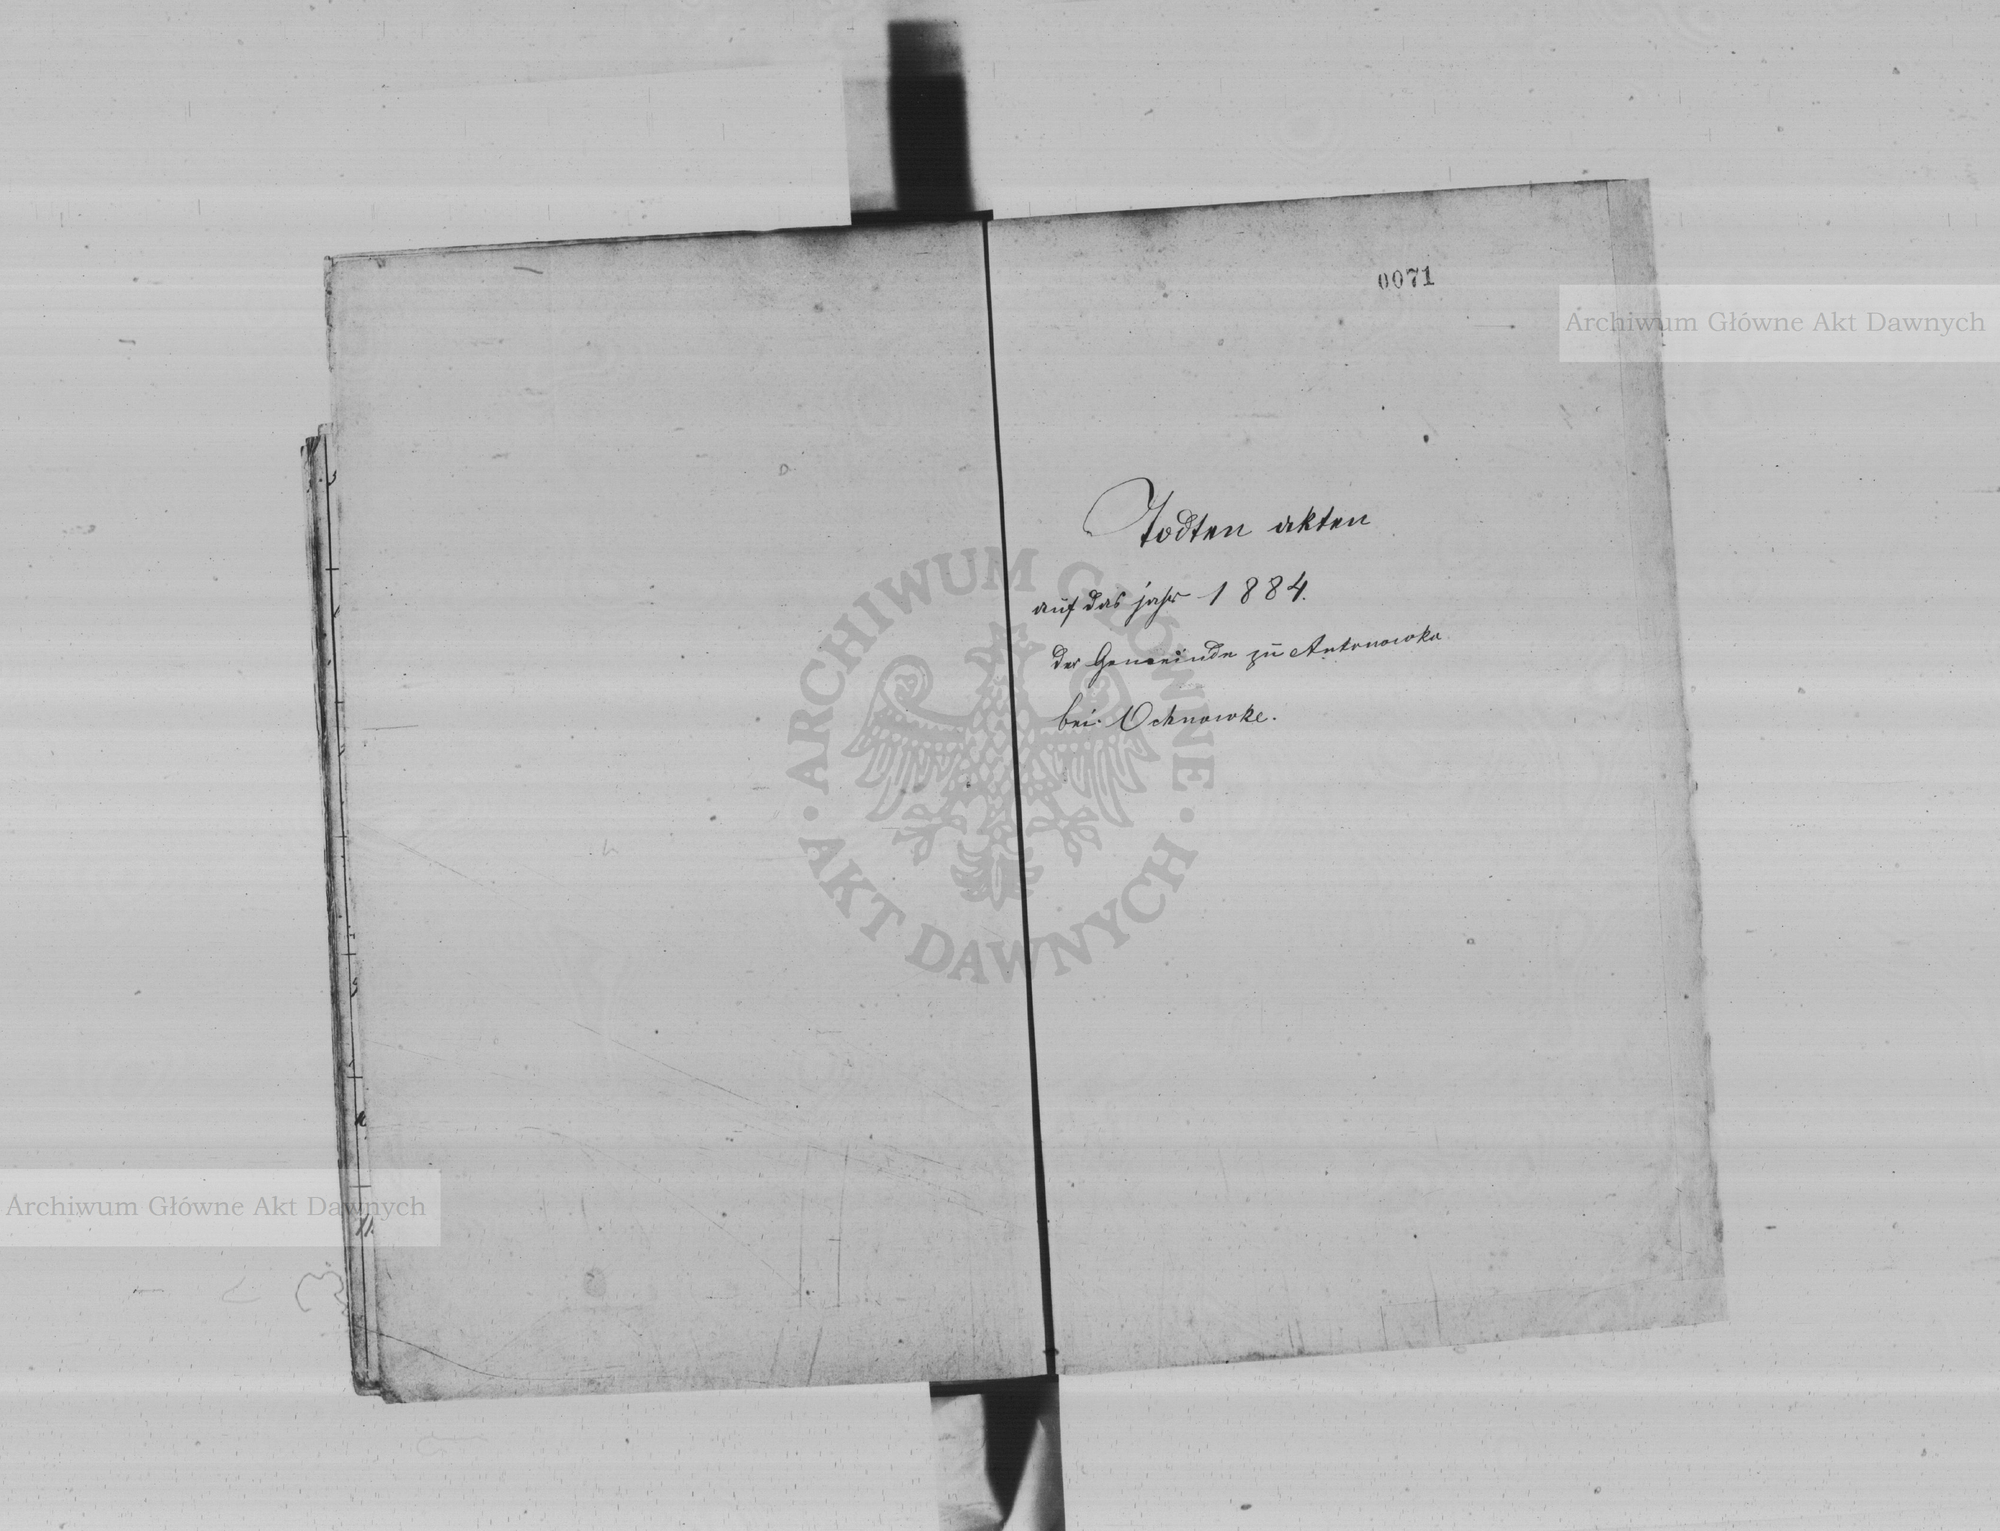 0071
Archiwum Główne Akt Dawnych
Todten akten
auf das jahr 1884.
der Gemeinde zu Antonowka
bei Ochnowke.
ARCHIWUM GŁÓWNE · AKT DAWNYCH ·
Archiwum Główne Akt Dawnych